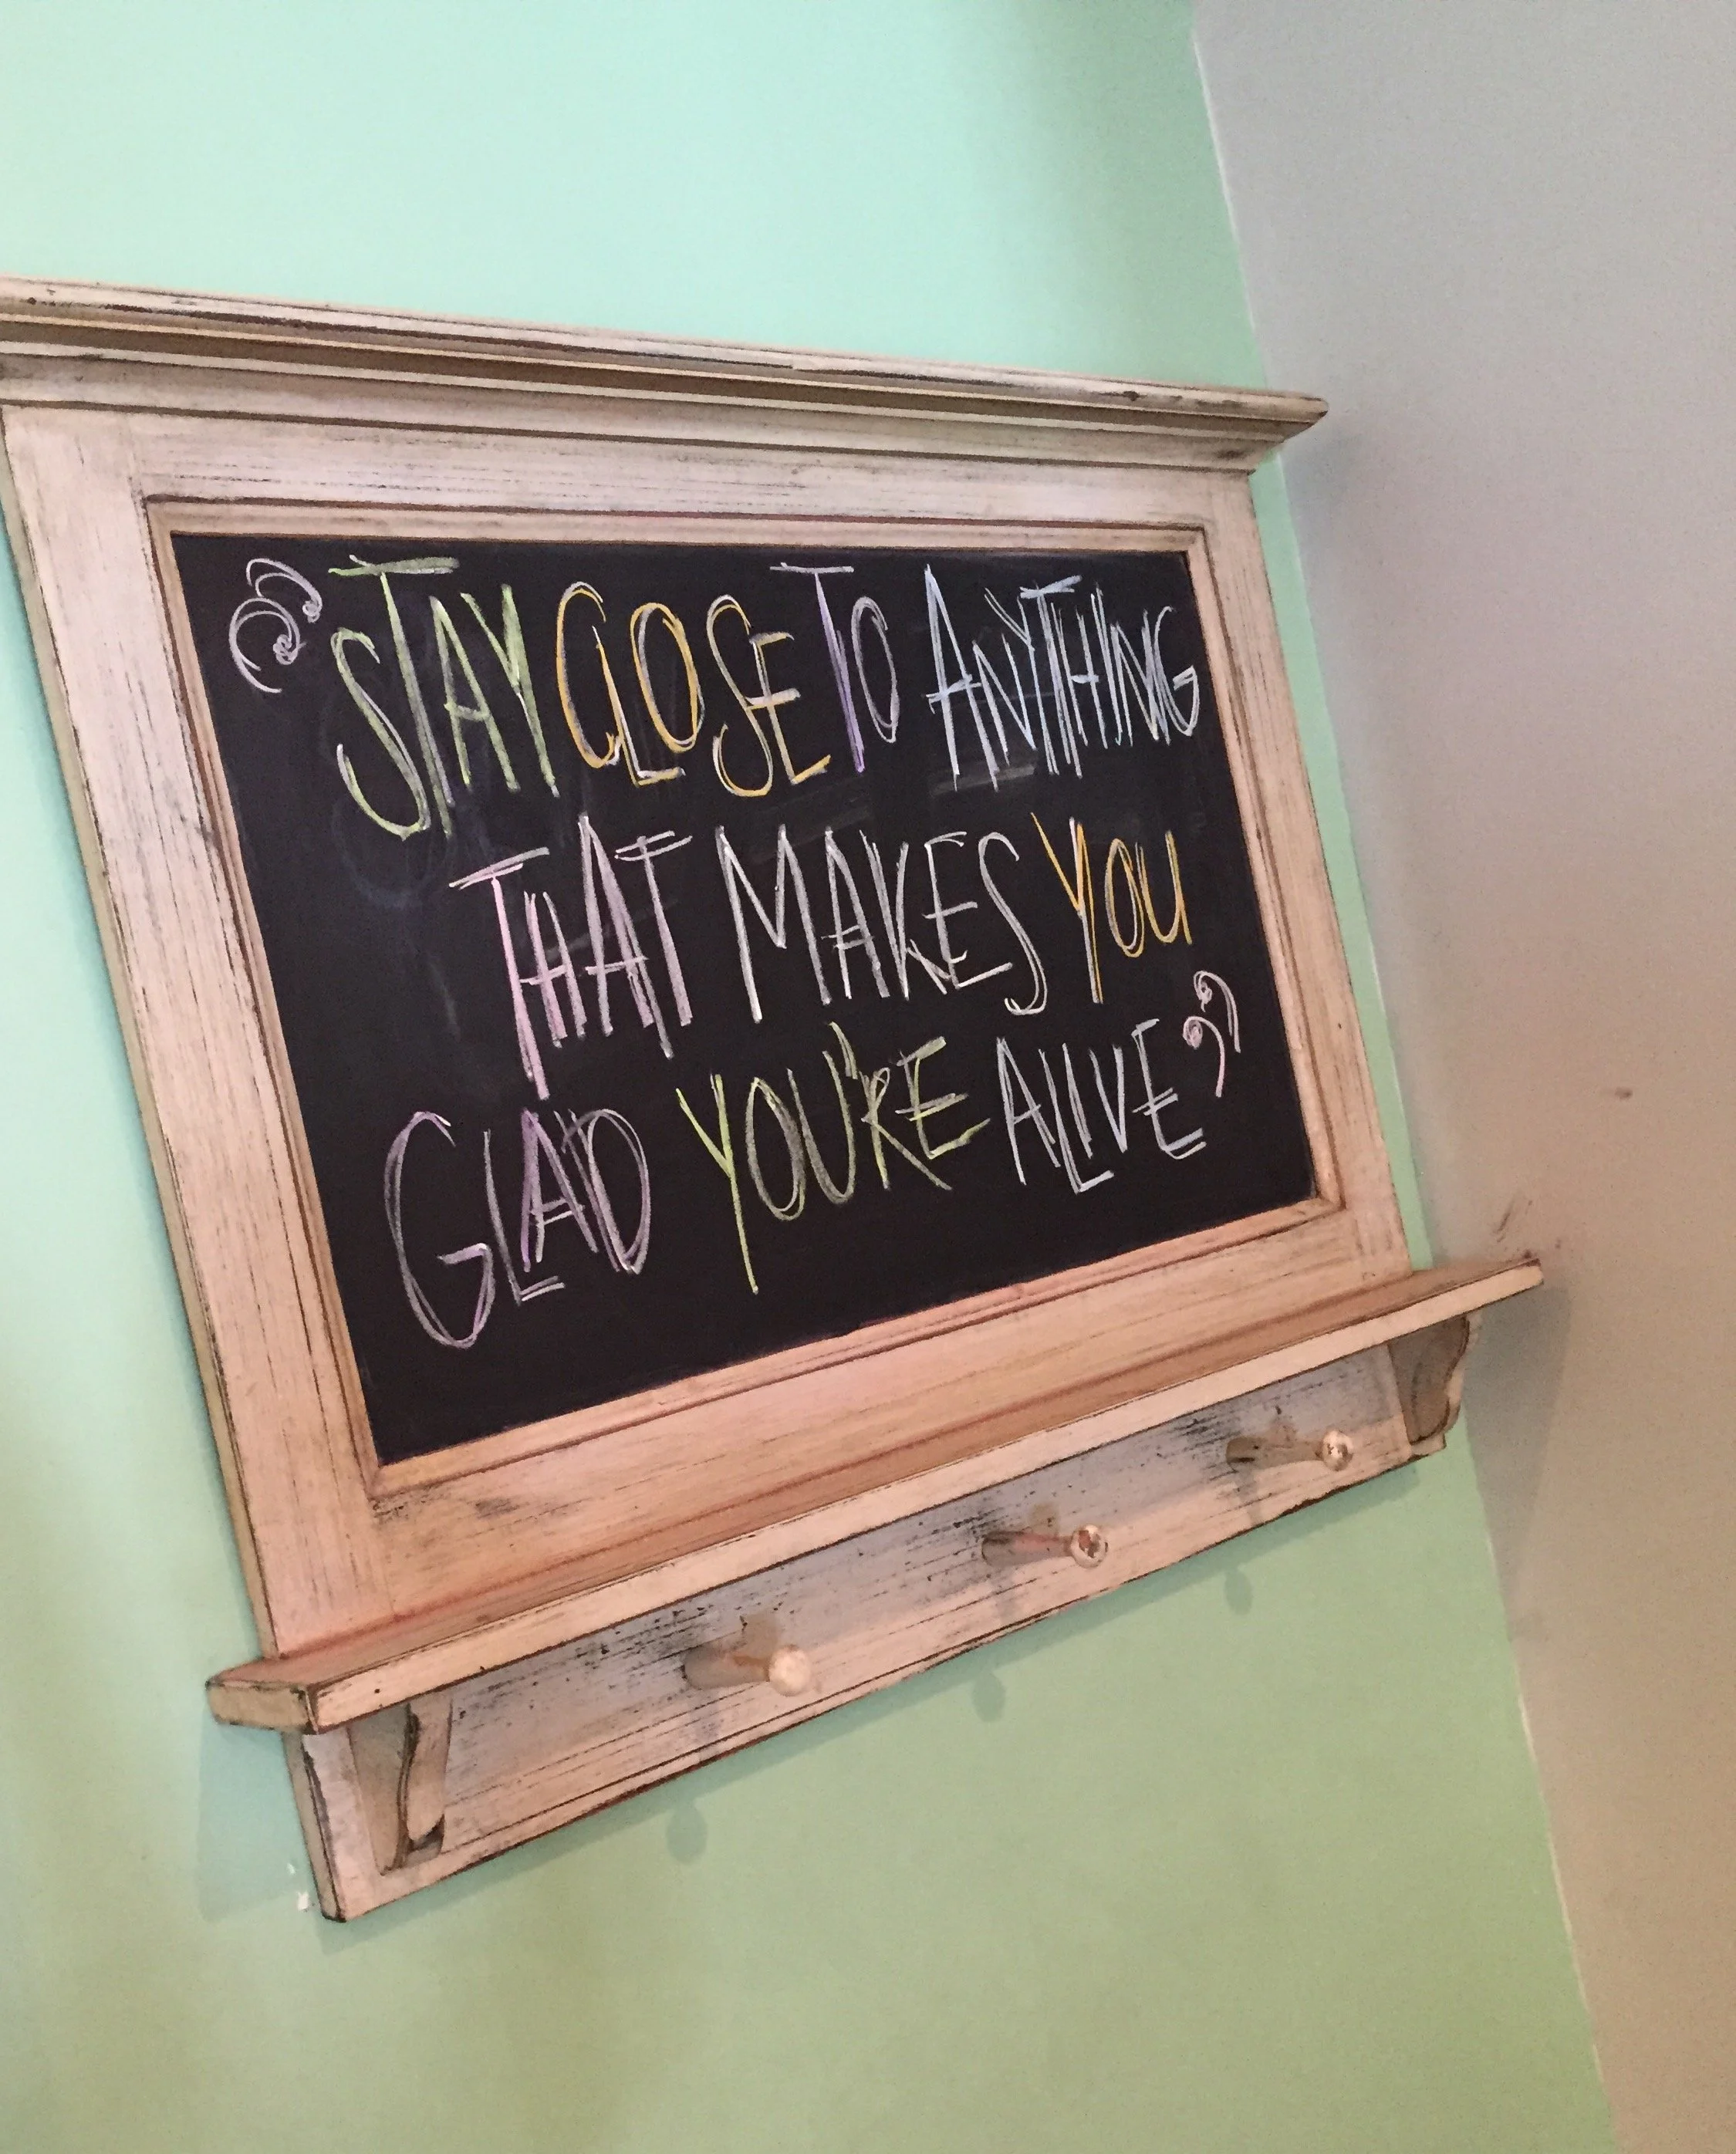 “STAY CLOSE TO ANYTHING
THAT MAKES YOU
GLAD YOU'RE ALIVE”